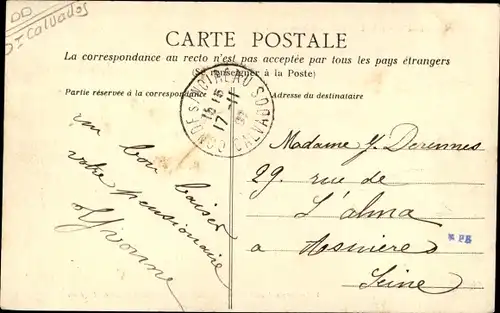 DI Calvados
CARTE POSTALE
La correspondance au recto n'est pas acceptée par tous les pays étrangers
(Se renseigner à la Poste)
Partie réservée à la correspondance
Adresse du destinataire
CONDÉ S/NOIREAU CALVADOS
15 15
17-11
un bon baiser
votre pensionaire
Yvonne
Madame Y. Derennes
29. rue de
L'alma
a Asnières
Seine